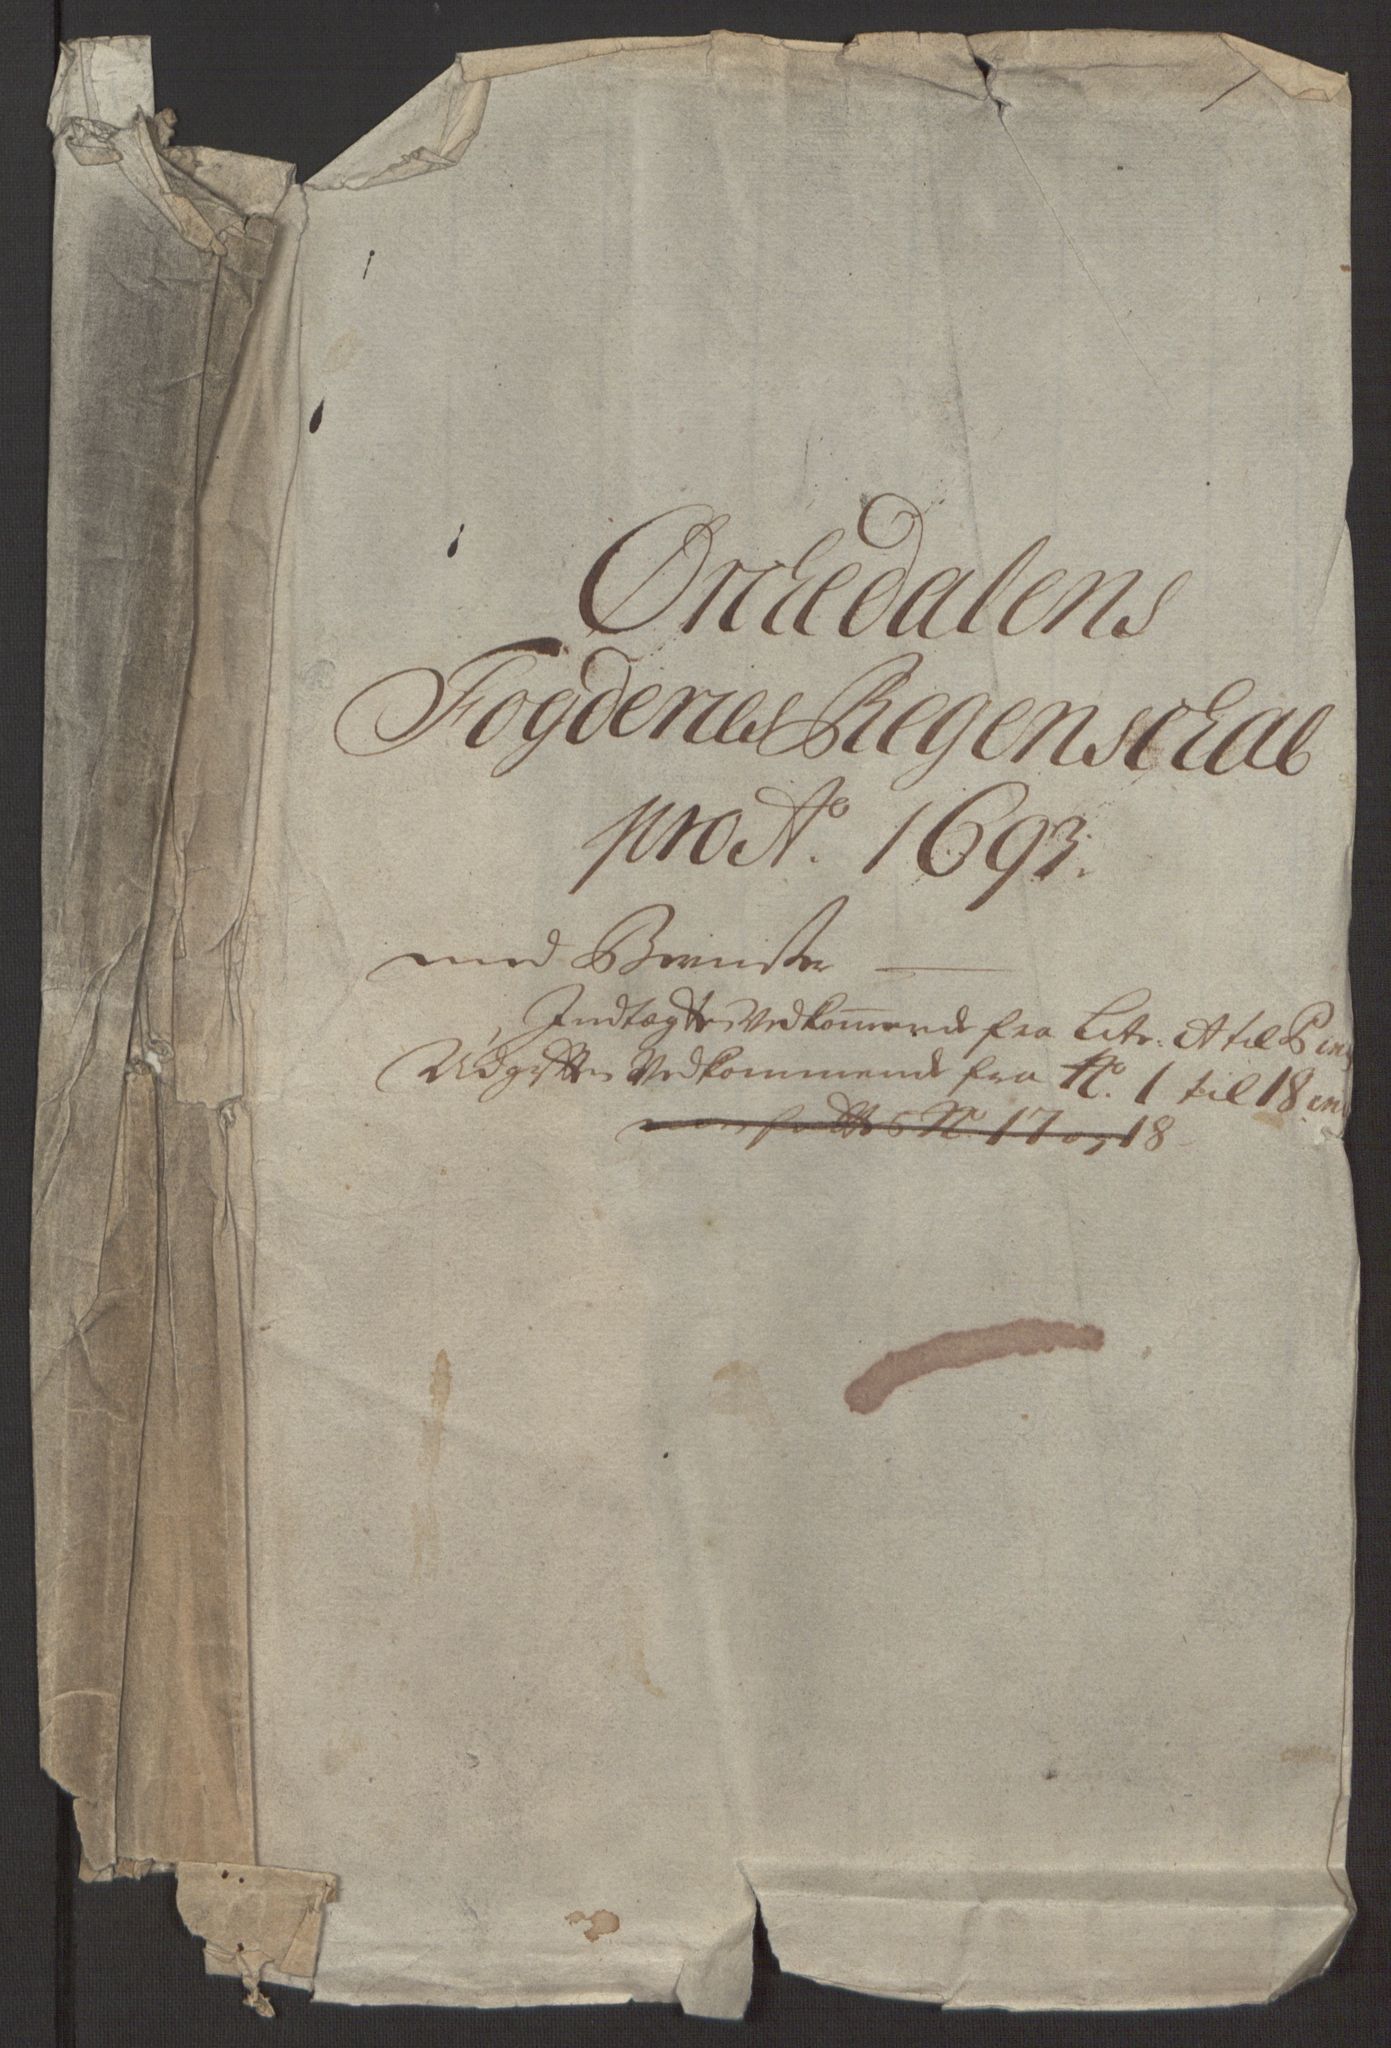 Ørckedalens
Fogderies Regenschab
pro Ao. 1693.
med Bevister
Indtægtten Vedkommende fra Litr. A til P in
Udgifften Vedkommende fra No. 1 til 18 in
No. 17 og 18